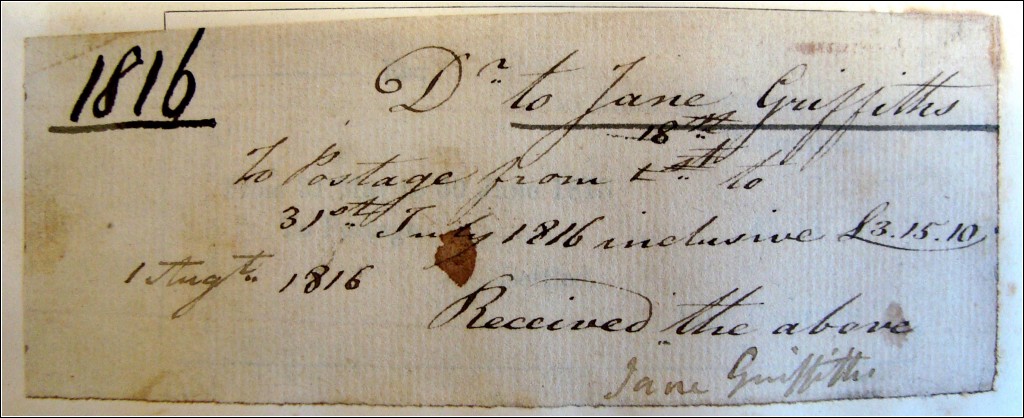 1816
Dr to Jane Griffiths
18th
To Postage from 1st to
31st July 1816 inclusive £3.15.10
1 Augt 1816
Received the above
Jane Griffiths